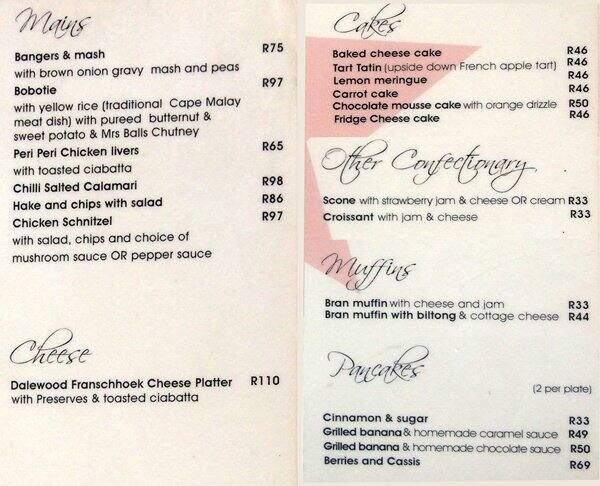 Mains
Bangers & mash R75
with brown onion gravy mash and peas
Bobotie R97
with yellow rice (traditional Cape Malay
meat dish) with pureed butternut &
sweet potato & Mrs Balls Chutney
Peri Peri Chicken livers R65
with toasted ciabatta
Chilli Salted Calamari R98
Hake and chips with salad R86
Chicken Schnitzel R97
with salad, chips and choice of
mushroom sauce OR pepper sauce
Cheese
Dalewood Franschhoek Cheese Platter R110
with Preserves & toasted ciabatta
Cakes
Baked cheese cake R46
Tart Tatin (upside down French apple tart) R46
Lemon meringue R46
Carrot cake R46
Chocolate mousse cake with orange drizzle R50
Fridge Cheese cake R46
Other Confectionary
Scone with strawberry jam & cheese OR cream R33
Croissant with jam & cheese R33
Muffins
Bran muffin with cheese and jam R33
Bran muffin with biltong & cottage cheese R44
Pancakes
(2 per plate)
Cinnamon & sugar R33
Grilled banana & homemade caramel sauce R49
Grilled banana & homemade chocolate sauce R50
Berries and Cassis R69